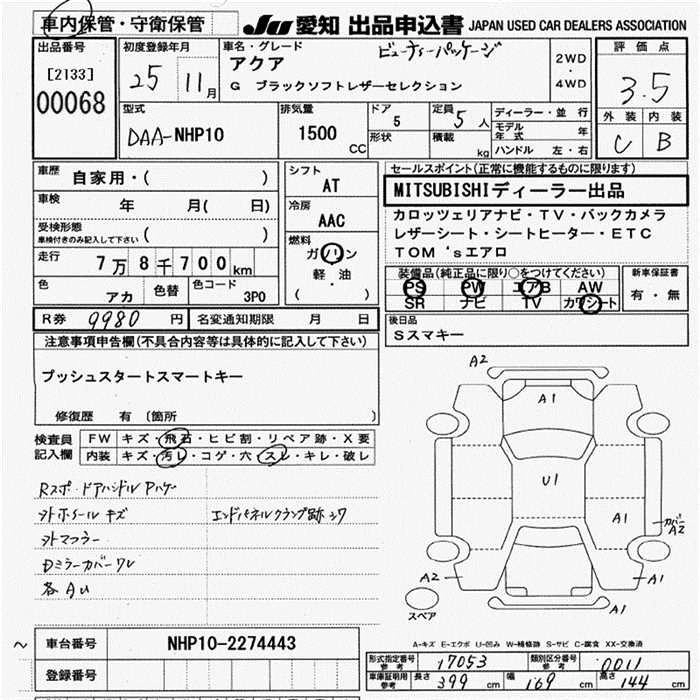 車内保管・守衛保管 JU 愛知 出品申込書 JAPAN USED CAR DEALERS ASSOCIATION
出品番号 [2133] 00068
初度登録年月 25 11月
車名・グレード ビューティーパッケージ
アクア
G ブラックソフトレザーセレクション
2WD・4WD
評価点 3.5
外装 内装
C B
型式 DAA-NHP10
排気量 1500 CC
ドア 5 形状
定員 5人 積載 kg
ディーラー・並行
モデル年式 年
ハンドル 左・右
車歴 自家用・( )
車検 年 月( 日)
受検形態 車検付きのみ記入して下さい ( )
走行 7万8千700km
色 アカ 色替 色コード 3P0
シフト AT
冷房 AAC
燃料 ガソリン 軽・油 ( )
セールスポイント(正常に機能するものに限ります)
MITSUBISHIディーラー出品
カロッツェリアナビ・TV・バックカメラ
レザーシート・シートヒーター・ETC
TOM'sエアロ
装備品(純正品に限り○をつけてください)
PS PW エアB AW
SR ナビ TV カワシート
新車保証書 有・無
R券 9980 円 名変通知期限 月 日
後日品
Sスマキー
注意事項申告欄(不具合内容等は具体的に記入して下さい)
プッシュスタートスマートキー
修復歴 有 (箇所 )
検査員記入欄
FW キズ・飛石・ヒビ割・リペア跡・X要
内装 キズ・汚レ・コゲ・穴・スレ・キレ・破レ
Rスポ・ドアハンドル Pハゲ
外ホイール キズ エンドパネルクランプ跡
外マフラー
Dミラーカバーワレ
各AU
A2
A1
U1
A1
カバーA2
A2
A1
A1
スペア
車台番号 NHP10-2274443
登録番号
A-キズ E-エクボ U-凹み W-補修跡 S-サビ C-腐食 XX-交換済
形式指定番号 参考 17053 類別区分番号 参考 0011
車庫証明用 参考 長さ 399 cm 幅 169 cm 高さ 144 cm